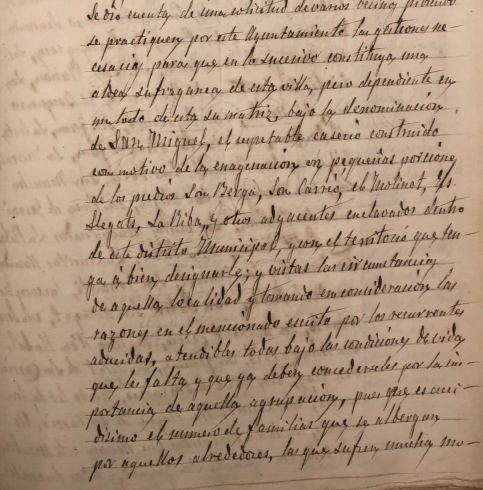 Se dió cuenta de una solicitud de varios vecinos pidiendo
se practiquen por este Ayuntamiento las gestiones ne-
cesarias para que en lo sucesivo constituya una
aldea sufraganea de esta villa, pero dependiente en
un todo de esta su matriz, bajo la denominación
de San Miguel, el respetable caserio construido
con motivo de la enagenación en pequeñas porciones
de los predios Son Berga, Son Carrió, el Molinet, Es
Llegats, La Riba, y otros adyacentes enclavados dentro
de este distrito Municipal, y con el territorio que ten-
ga á bien designarle; y vistas las circunstancias
de aquella localidad y tomando en consideración las
razones en el mencionado escrito por los recurrentes
aducidas, atendibles todas bajo las condiciones de vida
que les falta y que ya deben concederles por la im-
portancia de aquella agrupación, pues que es
el numero de familias que se albergan
por aquellos alrededores, las que sufren mucha mo-